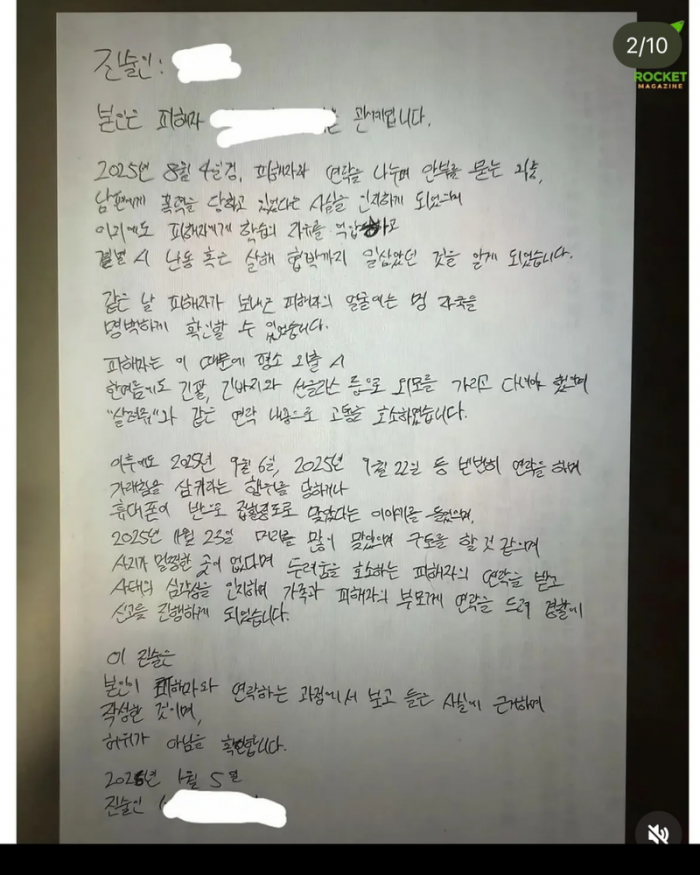 2/10
ROCKET
MAGAZINE
진술인:
본인은 피해자 관계입니다.
2025년 8월 4일경, 피해자와 연락을 나누며 안부를 묻는 도중,
남편에게 폭력을 당하고 있었다는 사실을 인지하게 되었으며
이외에도 피해자에게 학습의 자유를 억압하고
결별 시 난동 혹은 살해 협박까지 일삼았던 것을 알게 되었습니다.
같은 날 피해자가 보내온 피해자의 얼굴에는 멍 자국을
명백하게 확인할 수 있었습니다.
피해자는 이 때문에 평소 외출 시
한여름에도 긴팔, 긴바지와 선글라스 등으로 외모를 가리고 다녀야 했으며
"살려줘"와 같은 연락 내용으로 고통을 호소하였습니다.
이후에도 2025년 9월 6일, 2025년 9월 22일 등 빈번히 연락을 하며
가래침을 삼키라는 협박을 당하거나
휴대폰이 반으로 접힐정도로 맞았다는 이야기를 들었으며,
2025년 11월 23일 머리를 많이 맞았으며 구토를 할 것 같으며
사지가 멀쩡한 곳이 없다며 두려움을 호소하는 피해자의 연락을 받고
사태의 심각성을 인지하여 가족과 피해자의 부모께 연락을 드려 경찰에
신고를 진행하게 되었습니다.
이 진술은
본인이 피해자와 연락하는 과정에서 보고 들은 사실에 근거하여
작성한 것이며,
허위가 아님을 확인합니다.
2026년 1월 5일
진술인 (